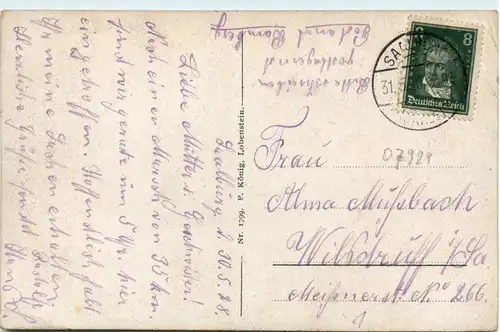 Saalburg d. 30.5.28
Liebe Mutter u. Geschwister!
Nach einem Marsch von 35 km
sind wir gerade um 5 Uhr hier
eingetroffen. Hoffentlich habt
Ihr meine Sachen erhalten
Herzliche Grüße sendet Euch
Bitte schreiben
postlagernd
Postamt Bamberg
Nr. 1799. P. König, Lobenstein.
8
Deutsches Reich
31.
07929
Frau
Alma Mußbach
Wilsdruff i/Sa
Meißnerstr. No 266.
1